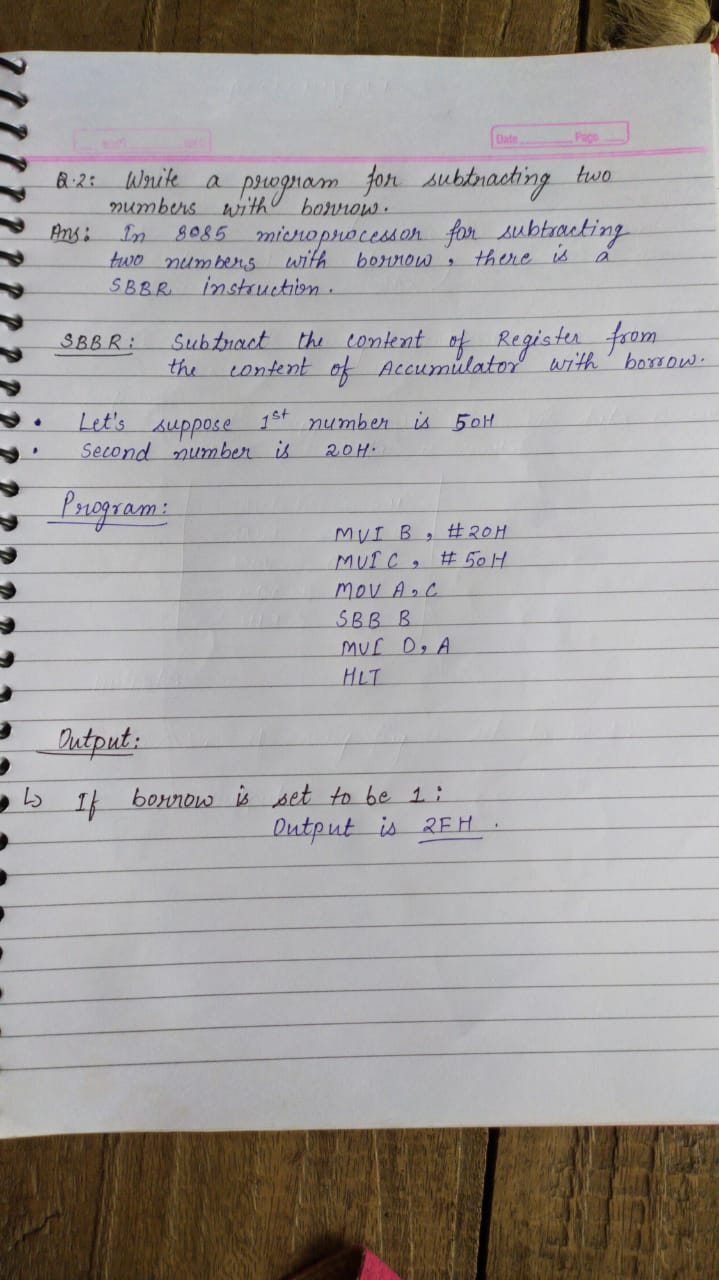 Date Page
Q.2: Write a program for subtracting two
numbers with borrow.
Ans: In 8085 microprocessor for subtracting
two numbers with borrow, there is a
SBBR instruction.
SBBR: Subtract the content of Register from
the content of Accumulator with borrow.
• Let's suppose 1st number is 50H
• Second number is 20H.
Program:
MVI B, #20H
MVI C, #50H
MOV A, C
SBB B
MVI D, A
HLT
Output:
↳ If borrow is set to be 1:
Output is 2FH.